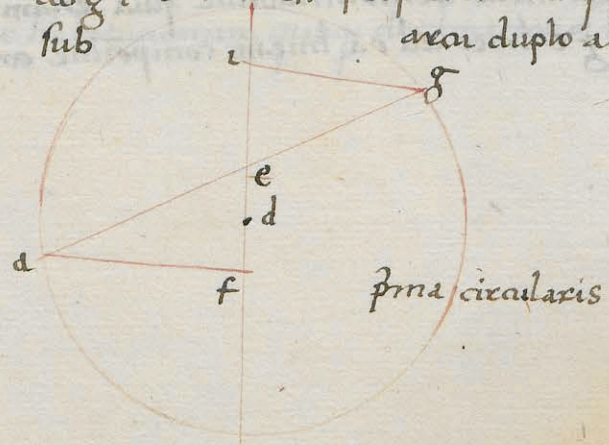 sub arcu duplo a
ı
g
e
d
a
f
p̄ma circularis